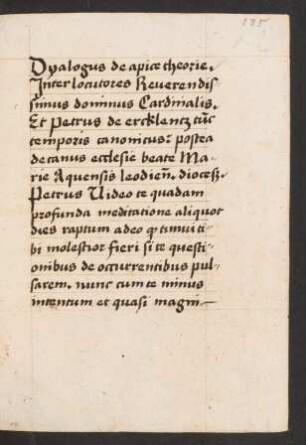 135
Dyalogus de apice theorie.
Interlocutores Reverendis
simus dominus Cardinalis.
Et Petrus de ercklentz tūc
temporis canonicus: postea
decanus ecclesie beate Ma-
rie Aquensis leodieñ. diocesꝭ.
Petrus Uideo te quadam
profunda meditatione aliquot
dies raptum adeo ꝙ timui ti-
bi molestior fieri si te questi-
onibus de occurrentibus pul-
sarem. nunc cum te minus
intentum et quasi magni-